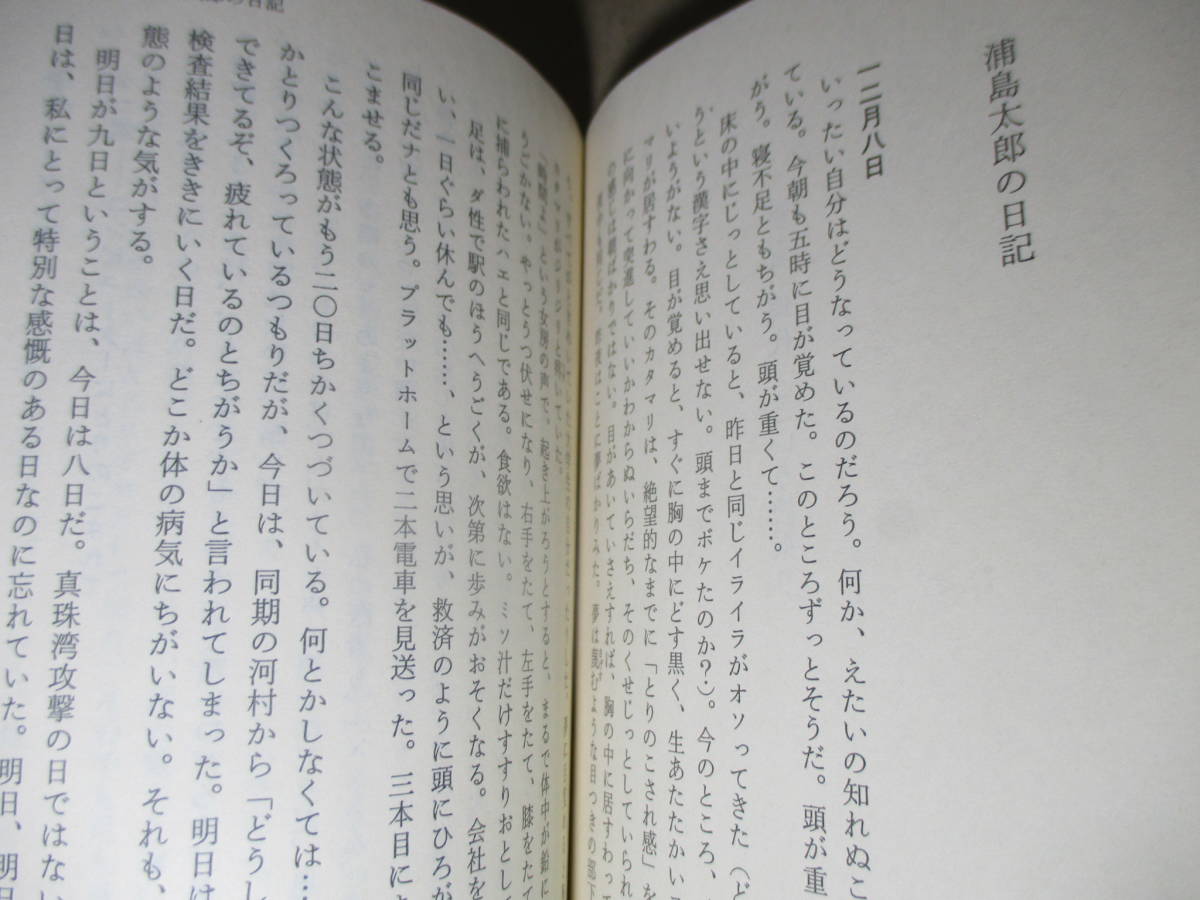 浦島太郎の日記
一二月八日
いったい自分はどうなっているのだろう。何か、えたいの知れぬこ
ている。今朝も五時に目が覚めた。このところずっとそうだ。頭が重
がう。寝不足ともちがう。頭が重くて……。
床の中にじっとしていると、昨日と同じイライラがオソってきた（ど
うという漢字さえ思い出せない。頭までボケたのか？）。今のところ、
いようがない。目が覚めると、すぐに胸の中にどす黒く、生あたたかい
マリが居すわる。そのカタマリは、絶望的なまでに「とりのこされ感」を
に向かって突進していいかわからぬいらだち、そのくせじっとしていられ
の感じは朝ばかりではない。目があいていさえすれば、胸の中に居すわって
夢は罠むような目つきの部下
「時間よ」という女房の声で、起き上がろうとすると、まるで体中が鉛に
うごかない。やっとうつ伏せになり、右手をたて、左手をたて、膝をたて
に捕らわれたハエと同じである。食欲はない。ミソ汁だけすすりおとして
足は、ダ性で駅のほうへうごくが、次第に歩みがおそくなる。会社を
い、一日ぐらい休んでも……、という思いが、救済のように頭にひろが
同じだナとも思う。プラットホームで二本電車を見送った。三本目に
こませる。
こんな状態がもう二〇日ちかくつづいている。何とかしなくては…
かとりつくろっているつもりだが、今日は、同期の河村から「どうし
できてるぞ、疲れているのとちがうか」と言われてしまった。明日は
検査結果をききにいく日だ。どこか体の病気にちがいない。それも、
態のような気がする。
明日が九日ということは、今日は八日だ。真珠湾攻撃の日ではない
日は、私にとって特別な感慨のある日なのに忘れていた。明日、明日
の日記